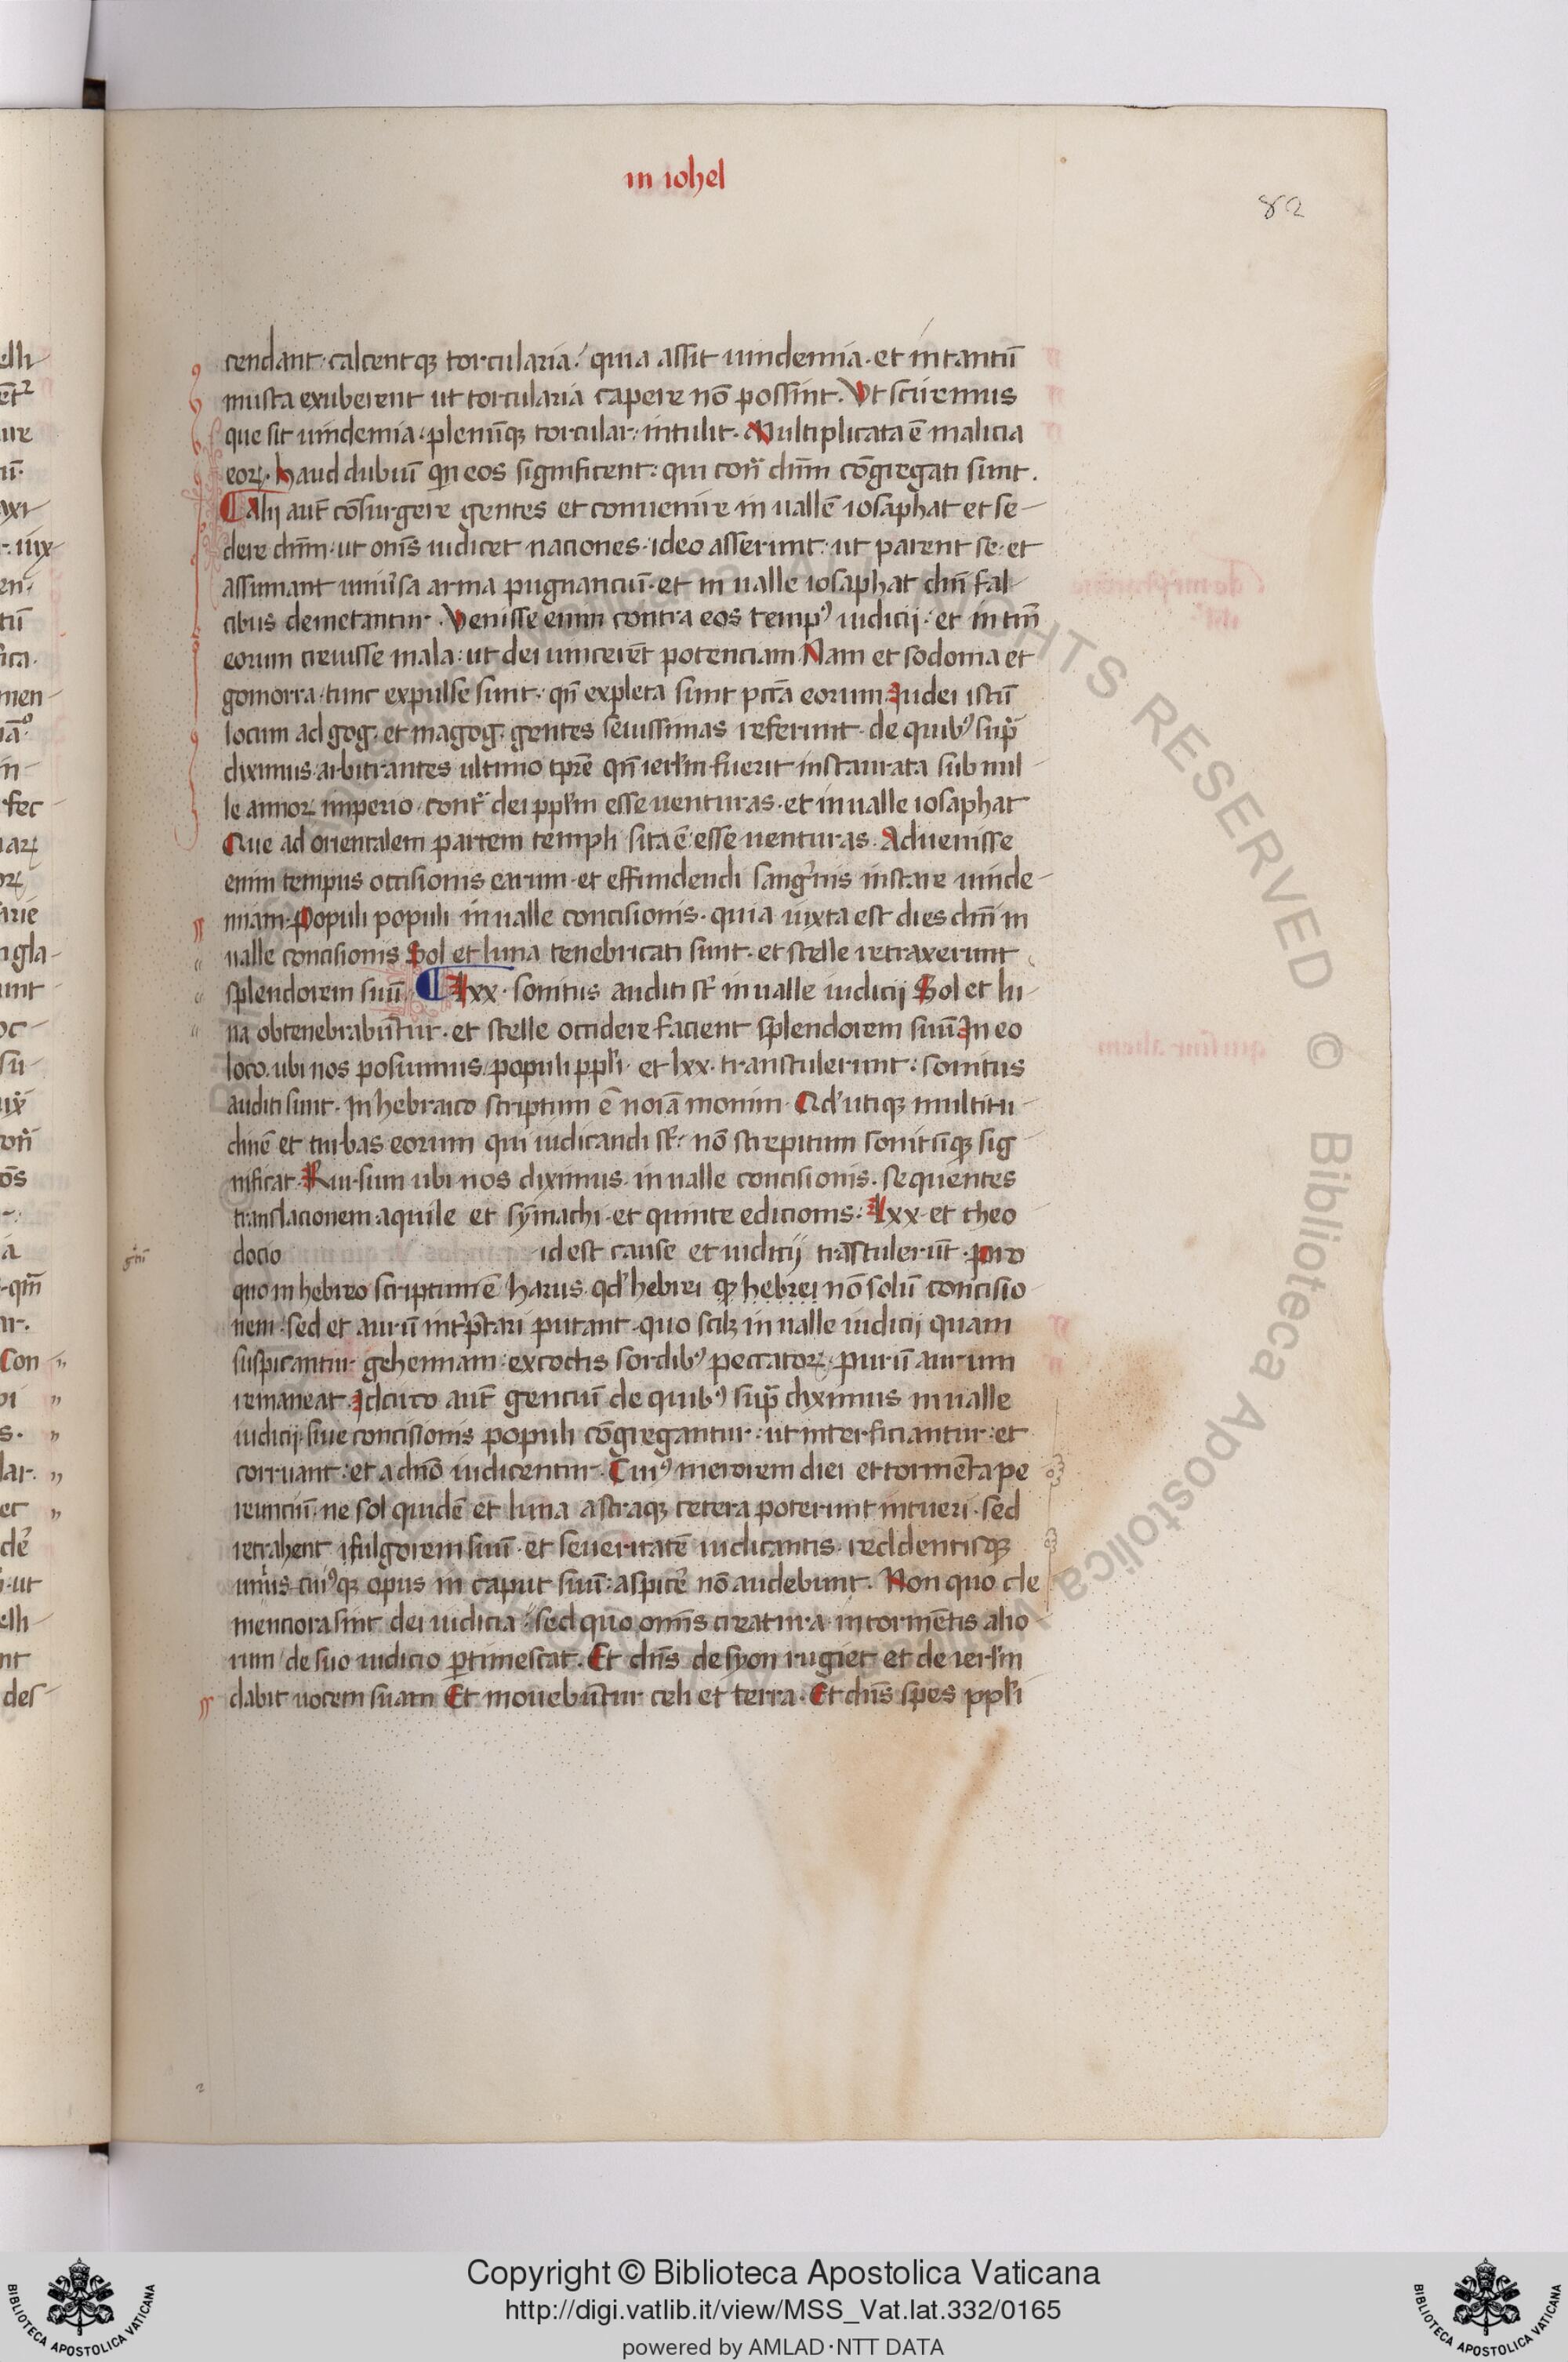 in iohel
82
cendant· calcentqꝫ torcularia· quia assit uindemia· et in tantū
musta exuberent ut torcularia capere nō possint. Vt sciremus
que sit uindemia· plenūqꝫ torcular· intulit. Multiplicata ē malicia
eoꝝ. Haud dubiū qn̄ eos significent· qui cont̄ dn̄m cōgregati sunt.
Talij aut̄ cōsurgere gentes et conuenire in uallē iosaphat et se-
dere dn̄m· ut om̄s iudicet naciones· ideo asserunt· ut parent se· et
assumant uniu̓sa arma pugnanciū· et in ualle iosaphat dn̄i fal-
cibus demetantur. Venisse enim contra eos tempꝰ iudicij· et in tm̄
eorum creuisse mala· ut dei uincerēt potenciam. Nam et sodoma et
gomorra· tunc expulse sunt· qn̄ expleta sunt pctā eorum. Iudei istū
locum ad gog· et magog· gentes seuissimas referunt· de quibꝰ sup̄
diximus· arbitrantes ultimo tp̄re qn̄ ierl̄m fuerit instaurata sub mil-
le annoꝝ imperio· cont̄ dei ppl̄m esse uenturas· et in ualle iosaphat
Que ad orientalem partem templi sita ē esse uenturas. Aduenisse
enim tempus occisionis earum· et effundendi sangⁱnis instare uinde-
miam. Populi populi in ualle concisionis· quia iuxta est dies dn̄i in
ualle concisionis Sol et luna tenebricati sunt· et stelle retraxerunt
splendorem suū. lxx· sonitus auditi st̄ in ualle iudicij Sol et lu-
na obtenebrabūtur· et stelle occidere facient splendorem suū In eo
loco· ubi nos posuimus· populi ppl̄i· et lxx· transtulerunt· sonitus
auditi sunt· In hebraico scriptum ē noīa monim· Qd̓ utiqꝫ multitu-
dinē et turbas eorum qui iudicandi st̄· nō strepitum sonitūqꝫ sig-
nificat. Rursum ubi nos diximus· in ualle concisionis· sequentes
translacionem aquile et sȳmachi· et quinte edicionis· lxx· et theo
docio id est cause et iudicij trāstulerūt· pro
quo in hebreo scriptum ē harus· qd̓ hebrei qꝫ hebrei nō solū concisio-
nem· sed et aurū int̓p̄tari putant· quo scilꝫ in ualle iudicij quam
suspicantur gehennam· excoctis sordibꝰ peccatoꝝ· purū aurum
remaneat. Idcirco aut̄ genciū de quibꝰ sup̄ diximus in ualle
iudicij siue concisionis populi cōgregantur· ut interficiantur· et
corruant· et a dn̄o iudicentur. Cuiꝰ merorem diei et tormēta pe
reunciū· ne sol quidē et luna astraqꝫ cetera poterunt intueri· sed
retrahent fulgorem suū· et seueritatē iudicantis· reddentisqꝫ
cuiꝰqꝫ opus in caput suū· aspice̓ nō audebunt. Non quo cle
menciora sint dei iudicia· sed quo omnis creatura in tormētis alio-
rum de suo iudicio ꝑtimescat. Et dn̄s de syon rugiet et de ierl̄m
dabit uocem suam Et mouebūtur celi et terra. Et dn̄s spes ppl̄i
Copyright © Biblioteca Apostolica Vaticana
http://digi.vatlib.it/view/MSS_Vat.lat.332/0165
powered by AMLAD·NTT DATA